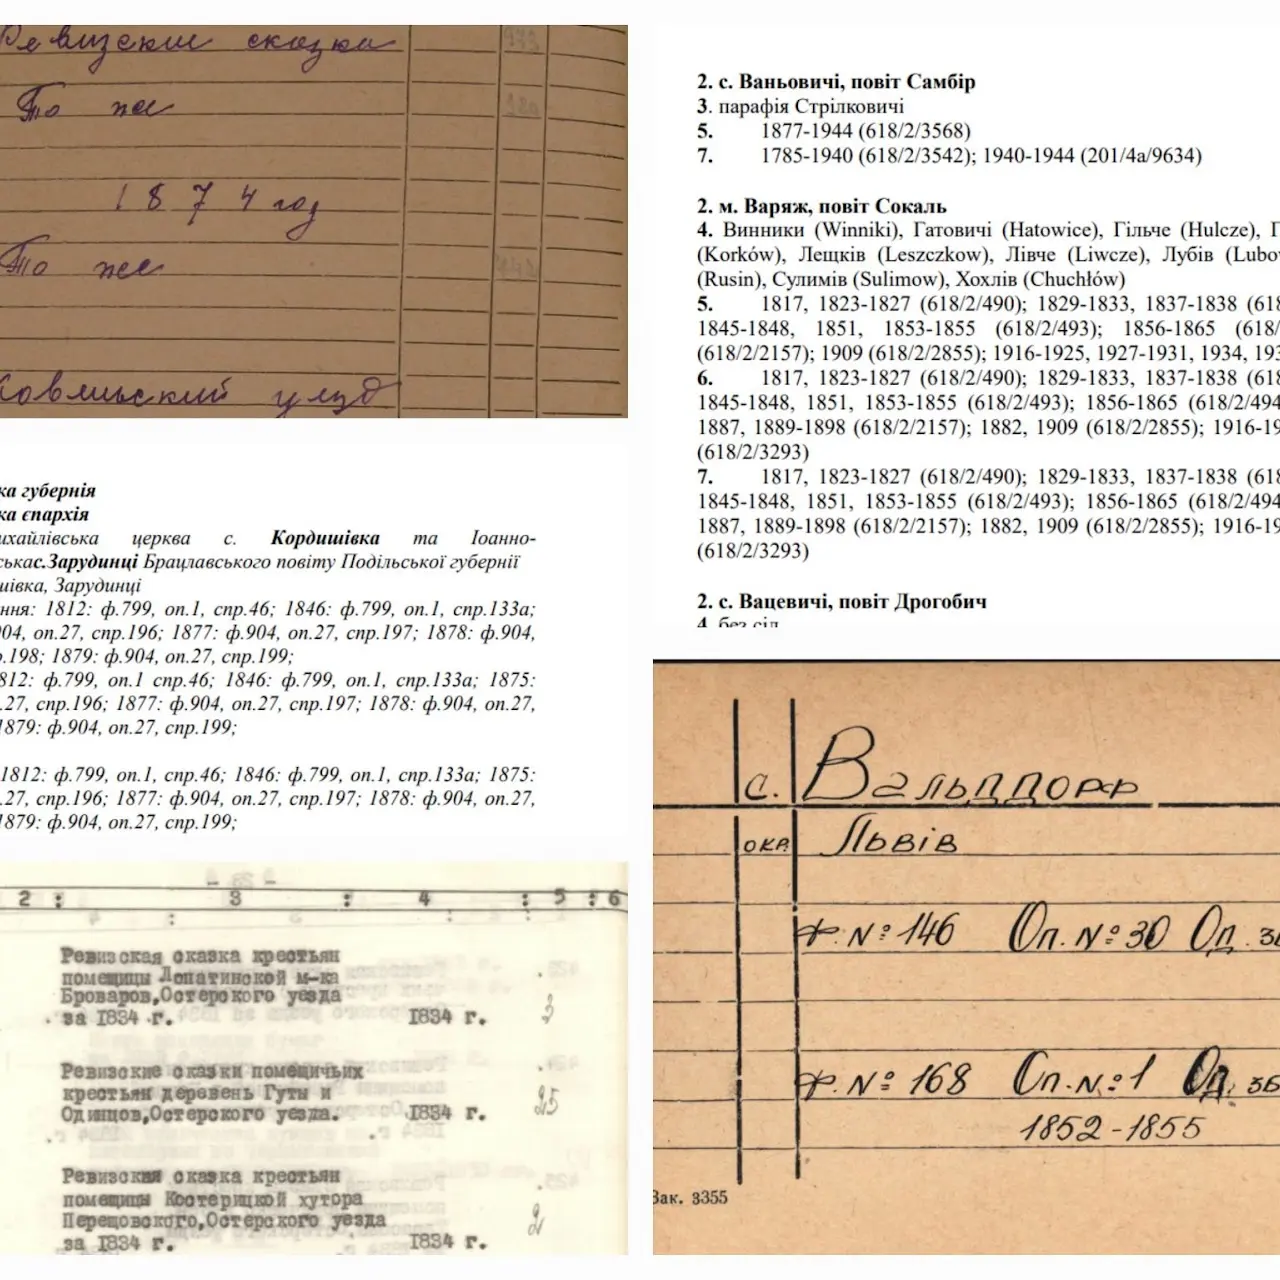 Ревизские сказки
То же
1874 год
То же
Ковельский уезд
ка губернія
ка єпархія
ихайлівська церква с. Кордишівка та Іоанно-
ськас.Зарудинці Брацлавського повіту Подільської губернії
шівка, Зарудинці
ння: 1812: ф.799, оп.1, спр.46; 1846: ф.799, оп.1, спр.133а;
904, оп.27, спр.196; 1877: ф.904, оп.27, спр.197; 1878: ф.904,
р.198; 1879: ф.904, оп.27, спр.199;
812: ф.799, оп.1 спр.46; 1846: ф.799, оп.1, спр.133а; 1875:
.27, спр.196; 1877: ф.904, оп.27, спр.197; 1878: ф.904, оп.27,
1879: ф.904, оп.27, спр.199;
1812: ф.799, оп.1, спр.46; 1846: ф.799, оп.1, спр.133а; 1875:
.27, спр.196; 1877: ф.904, оп.27, спр.197; 1878: ф.904, оп.27,
1879: ф.904, оп.27, спр.199;
2 : 3 : 4 : 5 : 6
Ревизская сказка крестьян
помещицы Лопатинской м-ка
Броваров,Остерского уезда
за 1834 г. 1834 г. 3
Ревизские сказки помещичьих
крестьян деревень Гуты и
Одинцов,Остерского уезда. 1834 г. 25
Ревизская сказка крестьян
помещицы Костерицкой хутора
Перещовского,Остерского уезда
за 1834 г. 1834 г. 2
2. с. Ваньовичі, повіт Самбір
3. парафія Стрілковичі
5. 1877-1944 (618/2/3568)
7. 1785-1940 (618/2/3542); 1940-1944 (201/4а/9634)
2. м. Варяж, повіт Сокаль
4. Винники (Winniki), Гатовичі (Hatowice), Гільче (Hulcze), Г
(Korków), Лещків (Leszczkow), Лівче (Liwcze), Лубів (Lubo
(Rusin), Сулимів (Sulimow), Хохлів (Chuchłów)
5. 1817, 1823-1827 (618/2/490); 1829-1833, 1837-1838 (618
1845-1848, 1851, 1853-1855 (618/2/493); 1856-1865 (618/
(618/2/2157); 1909 (618/2/2855); 1916-1925, 1927-1931, 1934, 193
6. 1817, 1823-1827 (618/2/490); 1829-1833, 1837-1838 (618
1845-1848, 1851, 1853-1855 (618/2/493); 1856-1865 (618/2/494
1887, 1889-1898 (618/2/2157); 1882, 1909 (618/2/2855); 1916-19
(618/2/3293)
7. 1817, 1823-1827 (618/2/490); 1829-1833, 1837-1838 (618
1845-1848, 1851, 1853-1855 (618/2/493); 1856-1865 (618/2/494
1887, 1889-1898 (618/2/2157); 1882, 1909 (618/2/2855); 1916-19
(618/2/3293)
2. с. Вацевичі, повіт Дрогобич
4. без сіл
с. Вальддорф
окр. Львів
Ф. №: 146 Оп. №: 30 Од. зб
Ф. №: 168 Оп. №: 1 Од. зб
1852-1855
Зак. 3355